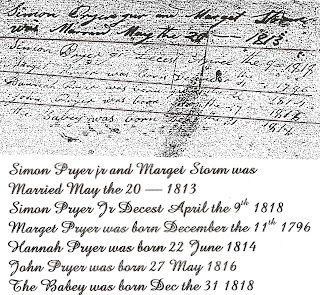 Simon Pryer jr and Marget Storm
was Married May the 20 — 1813
Simon Pryer Jr Decest the 9 1818
Marget Pryer was born 1796
Hannah Pryer was born 1814
John Pryer was born 1816
The Babey was born 1818
Simon Pryer jr and Marget Storm was
Married May the 20 — 1813
Simon Pryer Jr Decest April the 9th 1818
Marget Pryer was born December the 11th 1796
Hannah Pryer was born 22 June 1814
John Pryer was born 27 May 1816
The Babey was born Dec the 31 1818